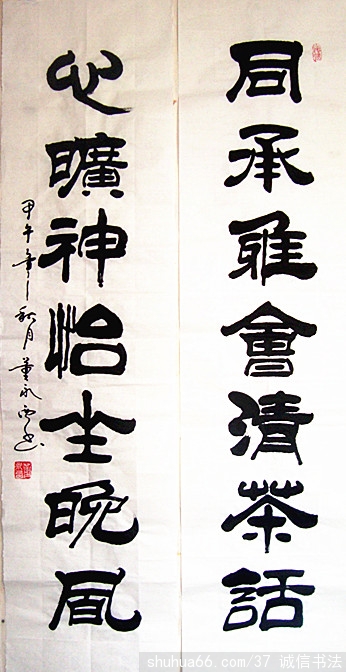 同承雅會清茶話
心曠神怡坐晚風
甲午年秋月董永
shuhua66.com/37 诚信书法